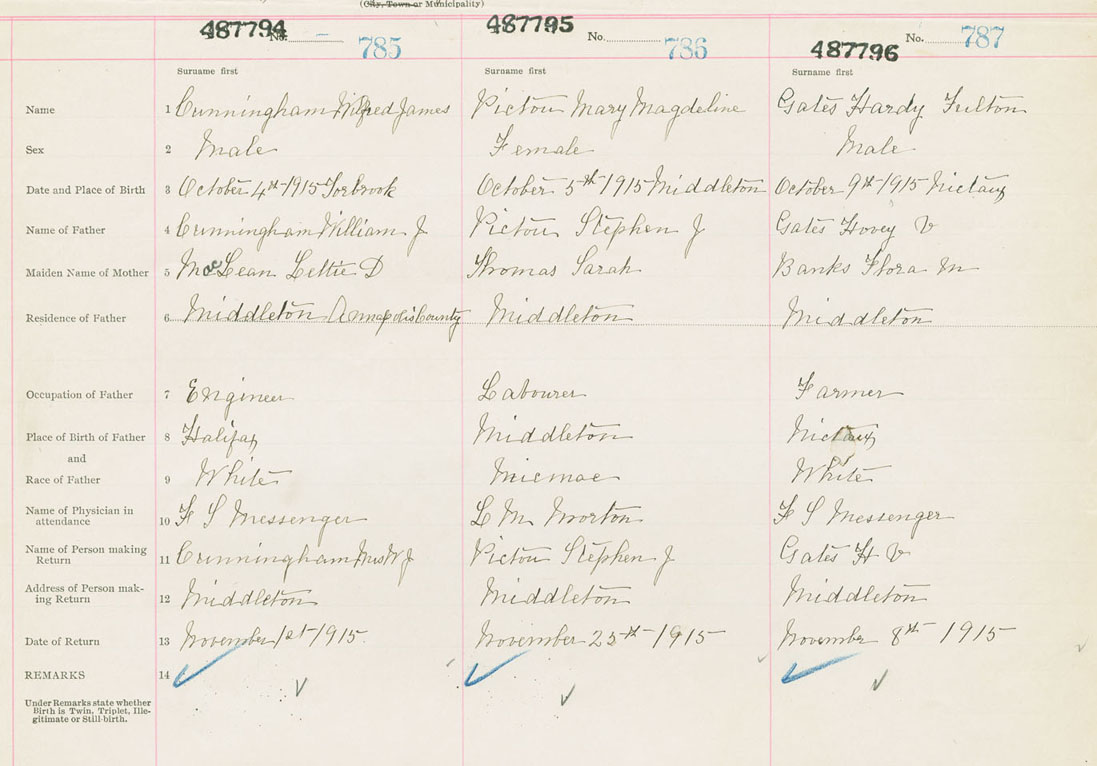 (City, Town or Municipality)
487794 No. 785 487795 No. 786 487796 No. 787
Surname first Surname first Surname first
Name 1 Cunningham Wilfred James Pictou Mary Magdeline Gates Hardy Fulton
Sex 2 Male Female Male
Date and Place of Birth 3 October 4th 1915 Torbrook October 5th 1915 Middleton October 9th 1915 Nictaux
Name of Father 4 Cunningham William J Pictou Stephen J Gates Hovey V
Maiden Name of Mother 5 MacLean Lettie D Thomas Sarah Banks Flora M
Residence of Father 6 Middleton Annapolis County Middleton Middleton
Occupation of Father 7 Engineer Labourer Farmer
Place of Birth of Father 8 Halifax Middleton Nictaux
and
Race of Father 9 White Micmac White
Name of Physician in
attendance 10 F S Messenger L M Morton F S Messenger
Name of Person making
Return 11 Cunningham Mrs W J Pictou Stephen J Gates H V
Address of Person mak-
ing Return 12 Middleton Middleton Middleton
Date of Return 13 November 1st 1915 November 25th 1915 November 8th 1915
REMARKS 14
Under Remarks state whether
Birth is Twin, Triplet, Ille-
gitimate or Still-birth.